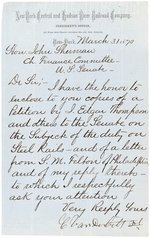 New York Central and Hudson River Railroad Company.
President's Office,
New-York, March 31, 1870
Hon John Sherman
Ch Finance Committee
U. S. Senate
Dr Sir; - I have the honor to
enclose to you copies of a
Petition by J Edgar Thompson
and others to the Senate on
the Subject of the duty on
Steel Rails - and of a letter
from S. M. Felton of Philadelphia
and of my reply thereto -
to which I respectfully
ask your attention
Very Resply Yours
C Vanderbilt